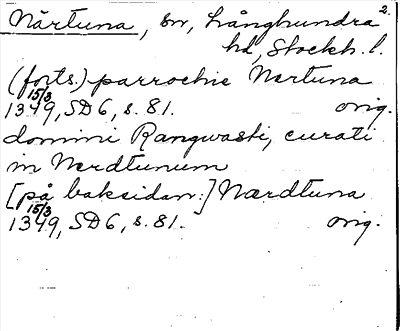 2.
Närtuna, sn, Långhundra
hd, Stockh. l.
(forts.) parrochie Nertuna
15/3
1349, SD 6, s. 81. orig.
domini Rangwasti, curati
in Nerdtunum
[på baksidan:] Nærdtuna
15/3
1349, SD 6, s. 81. orig.